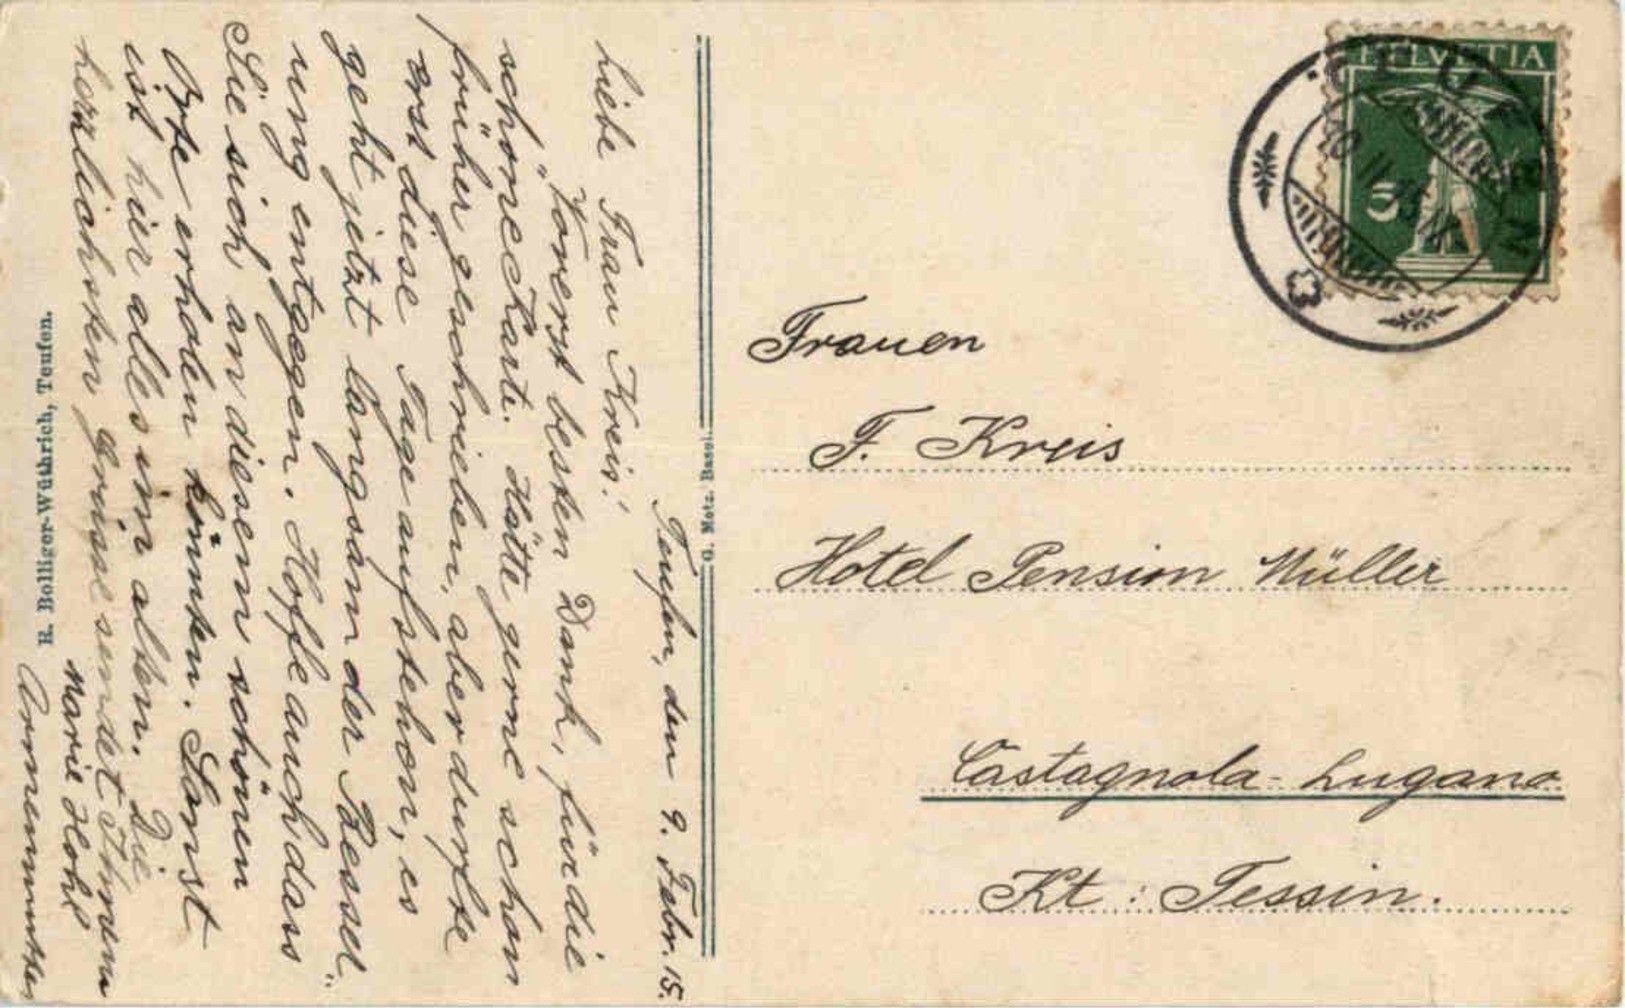 Teufen, den 9. Febr. 15.
Liebe Frau Kreis!
Vorerst besten Dank, für die
schöne Karte. Hätte gerne schon
früher geschrieben, aber durfte
erst diese Tage aufstehen, es
geht jetzt langsam der Besser„
ung entgegen. Hoffe auch dass
Sie sich an diesem schönen
Orte erholen könnten. Sonst
ist hier alles im alten. Die
herzlichsten Grüsse sendet Ihnen
Marie Hohl
Armenmutter
R. Bolliger-Wüthrich, Teufen.
G. Metz, Basel.
HELVETIA
5
TEUFEN
10 II 15
Frauen
F. Kreis
Hotel Pension Müller
Castagnola-Lugano
Kt: Tessin.